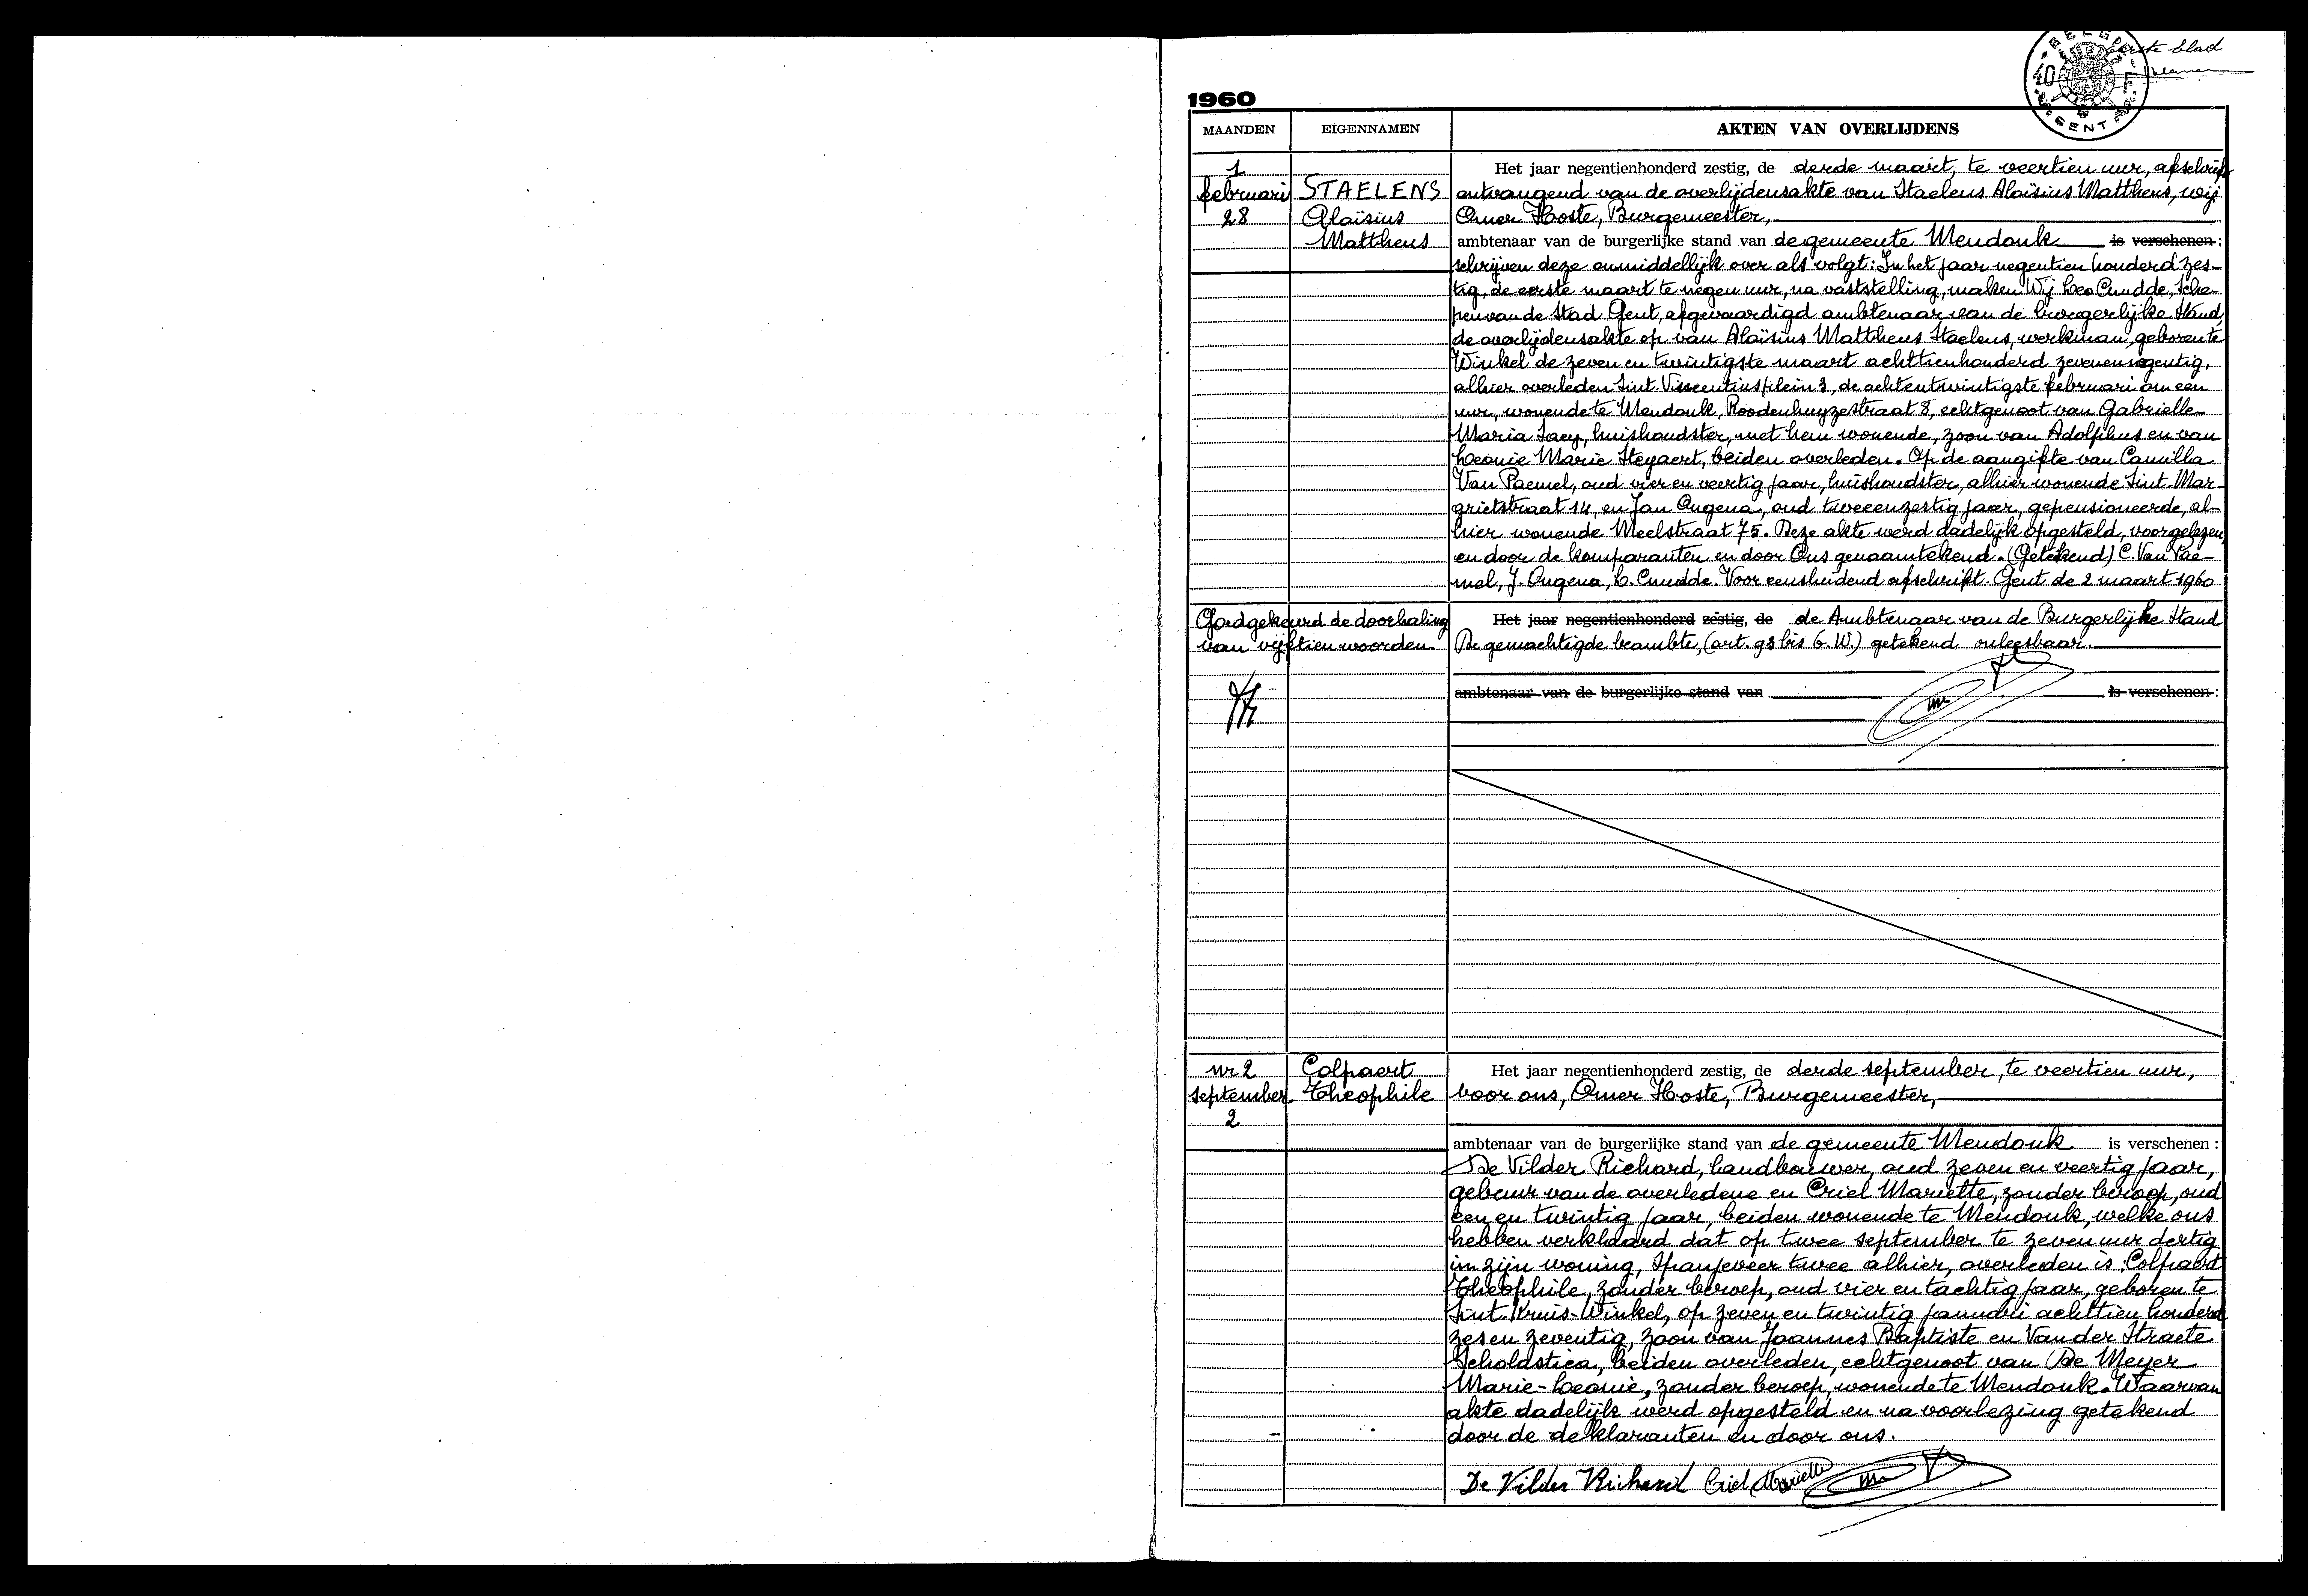 Eerste blad
BELGI
40 F
GENT
1960
MAANDEN EIGENNAMEN AKTEN VAN OVERLIJDENS
1
februari
28
STAELENS
Aloïsius
Mattheus
Het jaar negentienhonderd zestig, de derde maart, te veertien uur, afschrift
ontvangend van de overlijdensakte van Staelens Aloïsius Mattheus, wij
Omer Hoste, Burgemeester,
ambtenaar van de burgerlijke stand van de gemeente Mendonk is verschenen :
schrijven deze onmiddellijk over als volgt: In het jaar negentien honderd zes-
tig, de eerste maart te negen uur, na vaststelling, maken Wij Leo Cnudde, Sche-
pen van de Stad Gent, afgevaardigd ambtenaar van de burgerlijke Stand,
de overlijdensakte op van Aloïsius Mattheus Staelens, werkman, geboren te
Winkel de zeven en twintigste maart achttienhonderd zevenennegentig,
alhier overleden Sint Vincentiusplein 3, de achtentwintigste februari om een
uur, wonende te Mendonk, Roodenhuyzestraat 8, echtgenoot van Gabrielle
Maria Saey, huishoudster, met hem wonende, zoon van Adolphus en van
Leonie Marie Steyaert, beiden overleden. Op de aangifte van Camilla
Van Paemel, oud vier en veertig jaar, huishoudster, alhier wonende Sint Mar-
grietstraat 14, en Jan Ongena, oud tweeenzestig jaar, gepensioneerde, al-
hier wonende Meelstraat 75. Deze akte werd dadelijk opgesteld, voorgelezen
en door de komparanten en door Ons genaamtekend. (Getekend) C. Van Pae-
mel, J. Ongena, L. Cnudde. Voor eensluidend afschrift. Gent de 2 maart 1960
Goedgekeurd de doorhaling
van vijftien woorden
Het jaar negentienhonderd zestig, de de Ambtenaar van de Burgerlijke Stand
De gemachtigde beambte, (art. 93 bis G.W.) getekend onleesbaar.
ambtenaar van de burgerlijke stand van is verschenen :
nr 2
september
2
Colpaert
Theophile
Het jaar negentienhonderd zestig, de derde september, te veertien uur,
voor ons, Omer Hoste, Burgemeester,
ambtenaar van de burgerlijke stand van de gemeente Mendonk is verschenen :
De Vilder Richard, landbouwer, oud zeven en veertig jaar,
gebuur van de overledene en Criel Mariette, zonder beroep, oud
een en twintig jaar, beiden wonende te Mendonk, welke ons
hebben verklaard dat op twee september te zeven uur dertig
in zijn woning, Spanjeveer twee alhier, overleden is: Colpaert
Theophile, zonder beroep, oud vier en tachtig jaar, geboren te
Sint-Kruis-Winkel, op zeven en twintig januari achttien honderd
zes en zeventig, zoon van Joannes Baptiste en Van der Straete
Scholastica, beiden overleden, echtgenoot van De Meyer
Marie-Leonie, zonder beroep, wonende te Mendonk. Waarvan
akte dadelijk werd opgesteld en na voorlezing getekend
door de deklaranten en door ons.
De Vilder Richard Criel Mariette